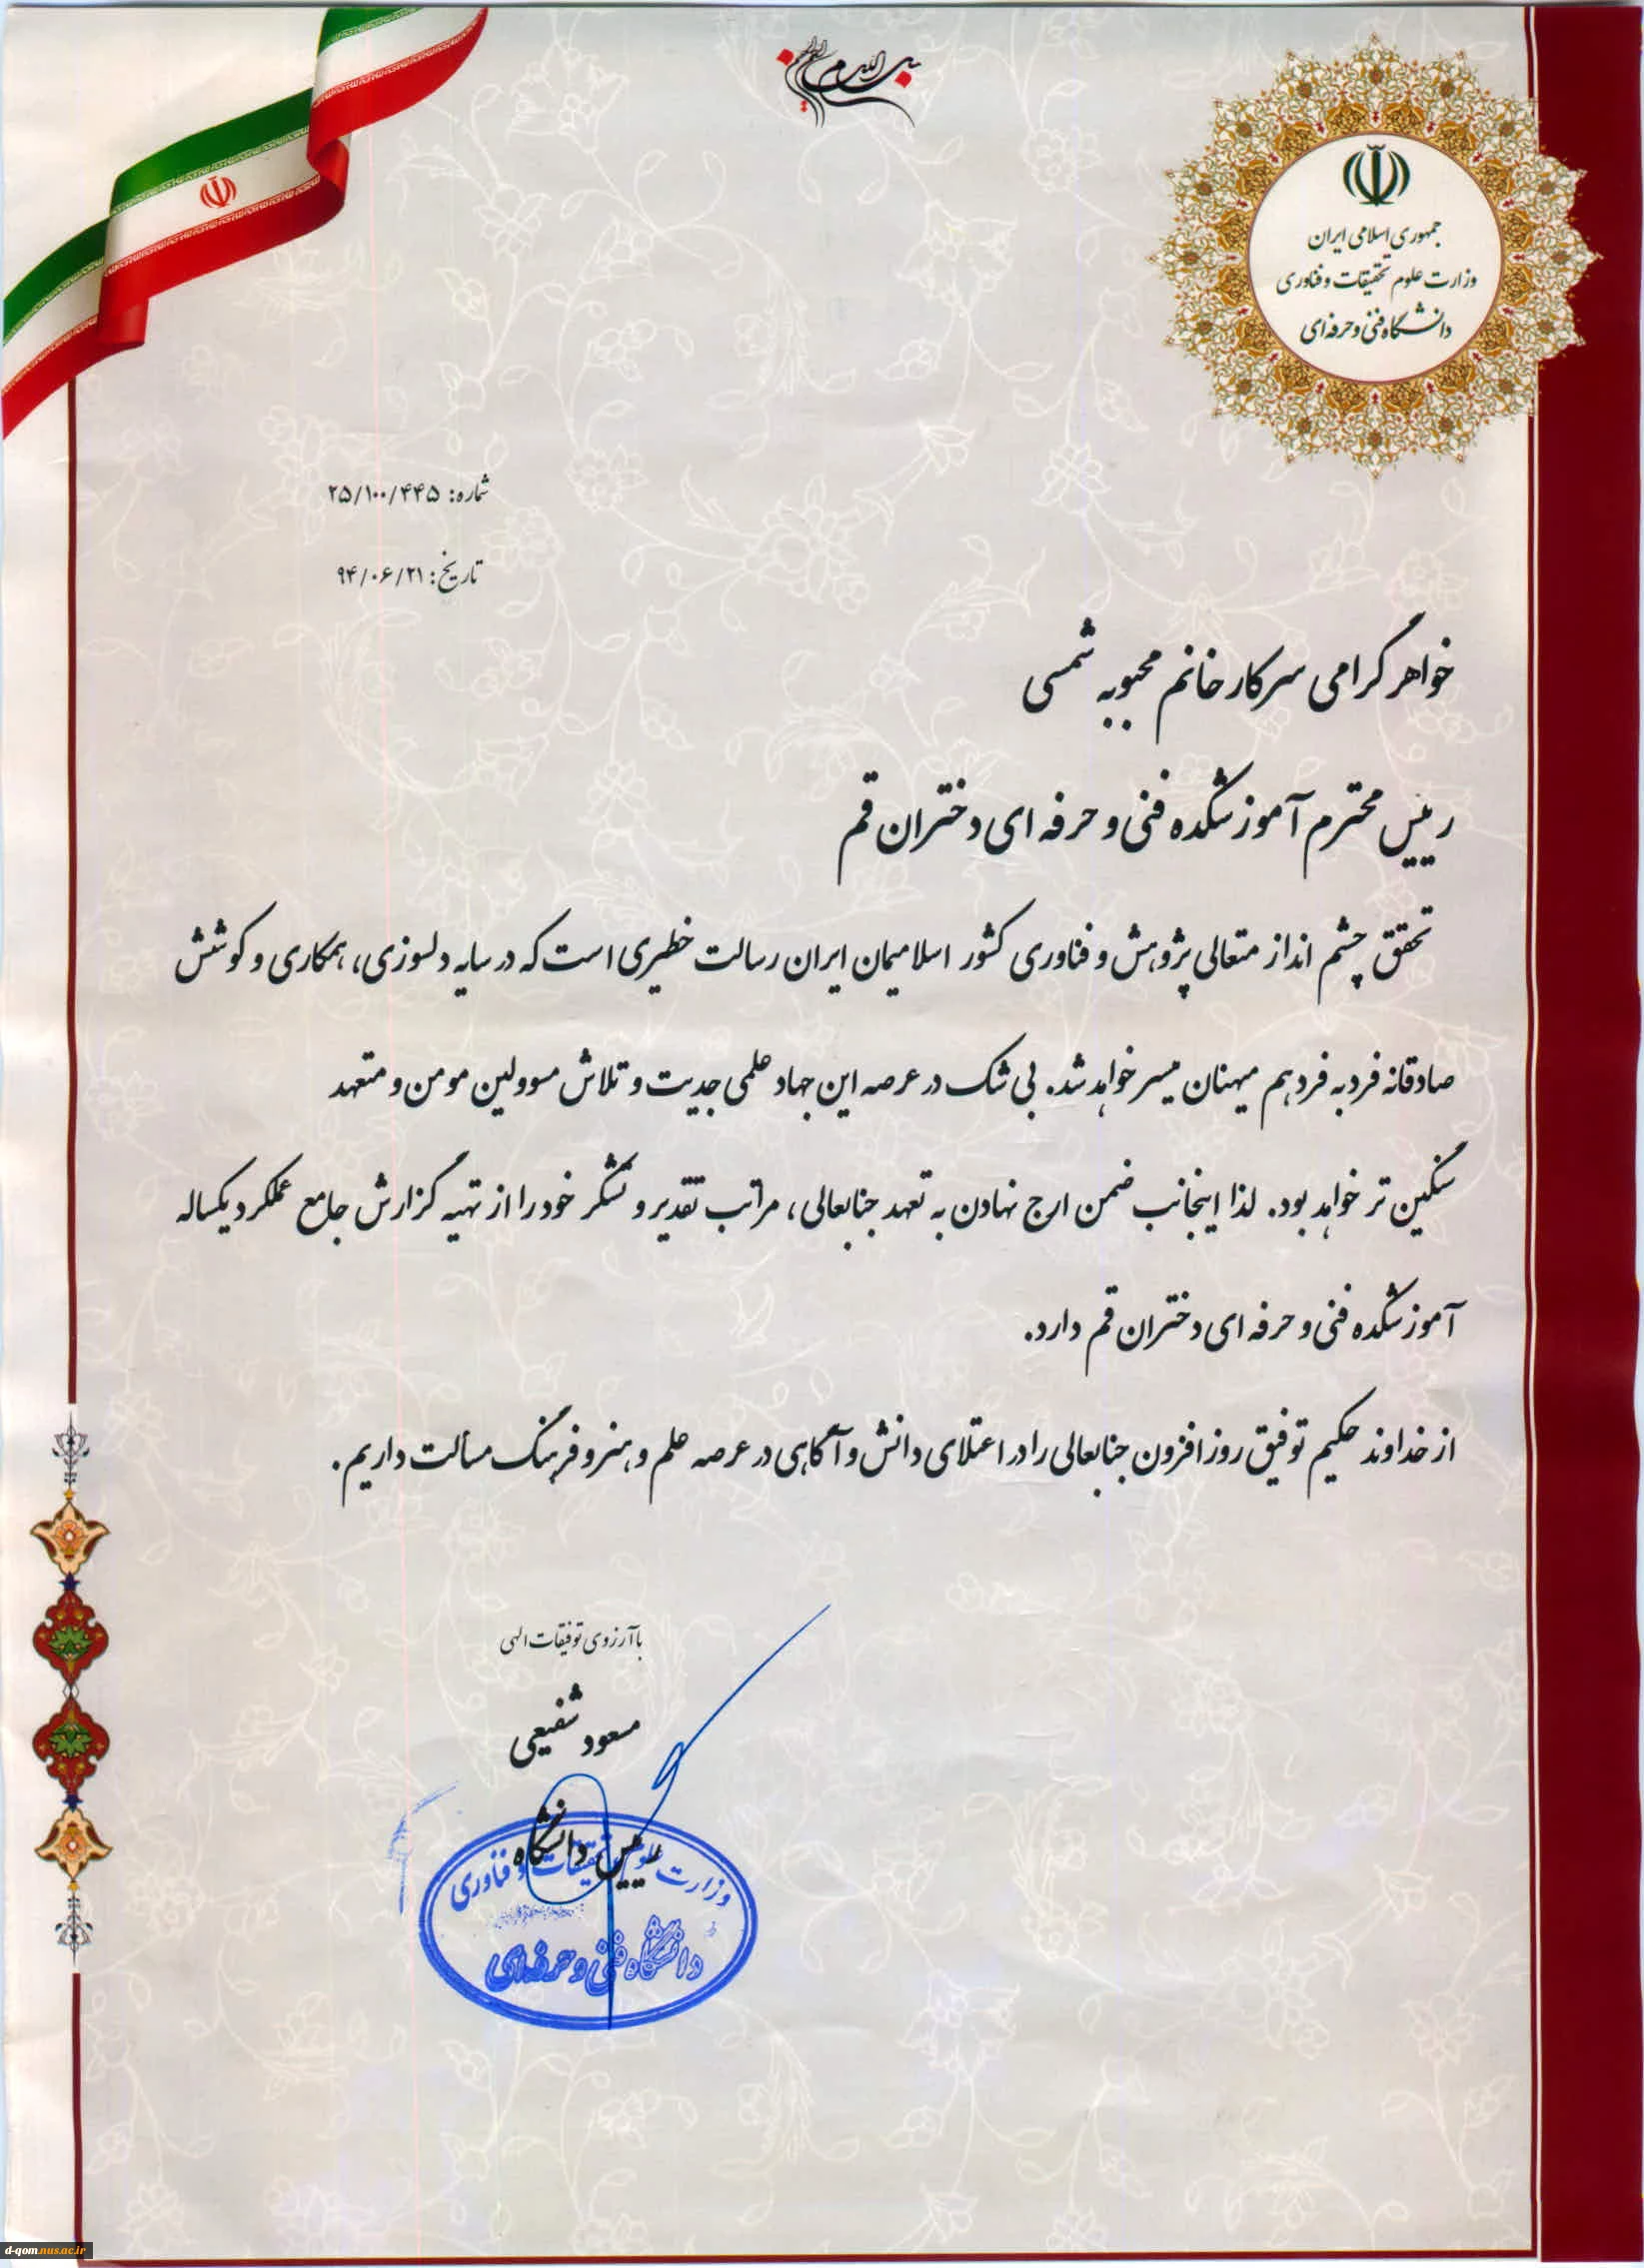 جمهوری اسلامی ایران
وزارت علوم تحقیقات و فناوری
دانشگاه فنی و حرفه‌ای
شماره: ۲۵/۱۰۰/۴۴۵
تاریخ: ۹۴/۰۶/۲۱
خواهر گرامی سرکار خانم محبوبه شمسی
رییس محترم آموزشکده فنی و حرفه ای دختران قم
تحقق چشم انداز متعالی پژوهش و فناوری کشور اسلامیمان ایران رسالت خطیری است که در سایه دلسوزی، همکاری و کوشش
صادقانه فرد به فرد هم میهنان میسر خواهد شد. بی شک در عرصه این جهاد علمی جدیت و تلاش مسوولین مومن و متعهد
سنگین تر خواهد بود. لذا اینجانب ضمن ارج نهادن به تعهد جنابعالی، مراتب تقدیر و تشکر خود را از تهیه گزارش جامع عملکرد یکساله
آموزشکده فنی و حرفه ای دختران قم دارد.
از خداوند حکیم توفیق روز افزون جنابعالی را در اعتلای دانش و آگاهی در عرصه علم و هنر و فرهنگ مسألت داریم.
با آرزوی توفیقات الهی
مسعود شفیعی
رییس دانشگاه
وزارت علوم تحقیقات و فناوری
دانشگاه فنی و حرفه‌ای
d-qom.nus.ac.ir